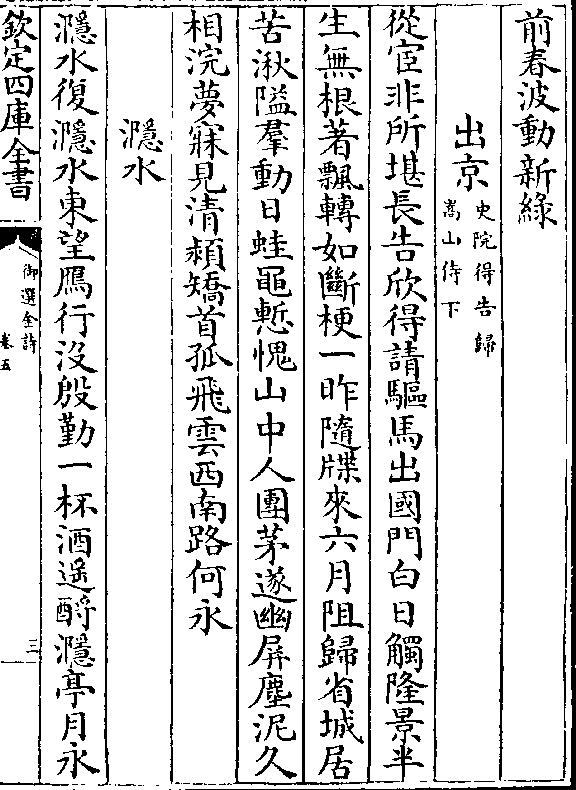 前春波動新綠
出京史院得告歸
嵩山侍下
從宦非所堪長告欣得請驅馬出國門白日觸隆景半
生無根著飄轉如斷梗一昨隨牒來六月阻歸省城居
苦湫隘羣動日蛙黽慙愧山中人團茅遂幽屏塵泥久
相浣夢寐見清潁矯首孤飛雲西南路何永
㶏水
㶏水復㶏水東望鴈行沒殷勤一杯酒遥酹㶏亭月永
欽定四庫全書
御選金詩
卷五
三